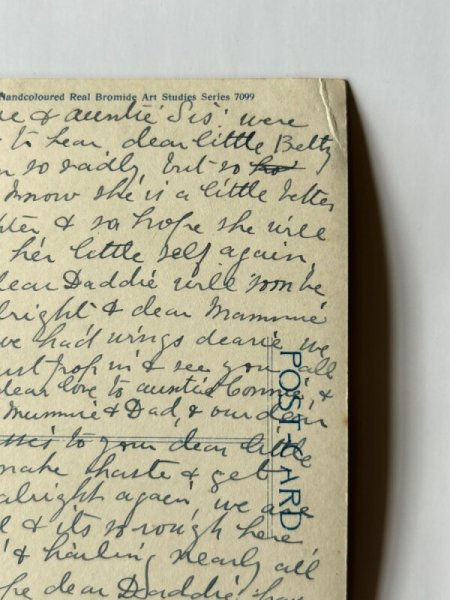 Handcoloured Real Bromide Art Studies Series 7099
& auntie Sis: were
to hear, dear little Betty
so sadly, but so
know she is a little better
& so hope she will
her little self again,
dear Daddie will soon be
alright & dear Mammie
we had wings dearie we
just pop in & see you all
dear love to auntie Connie, &
Mummie & Dad, & our dear
to your dear little
make haste & get
alright again, we are
& its so rough here
& hailing nearly all
dear Daddie
POST CARD